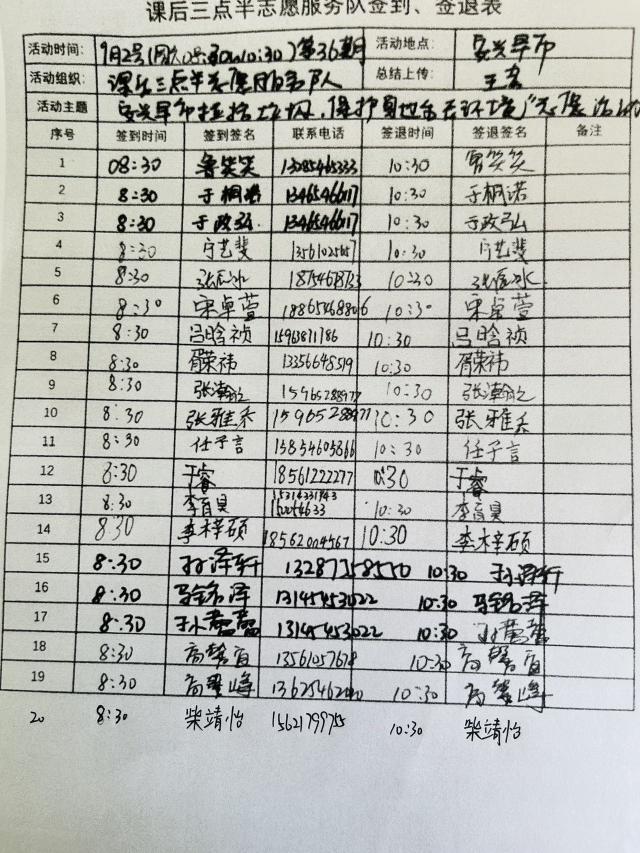 课后三点半志愿服务队签到、签退表
活动时间: 9月2号(周六08:30-10:30)第36期 活动地点: 安兴早市
活动组织: 课后三点半志愿服务队 总结上传:
活动主题 安兴早市捡拾垃圾,保护
序号 签到时间 签到签名 联系电话 签退时间 签退签名 备注
1 08:30 鲁笑笑 13285465333 10:30 鲁笑笑
2 8:30 于桐诺 13465466117 10:30 于桐诺
3 8:30 于政弘 13465466117 10:30 于政弘
4 8:30 宁艺斐 10:30 宁艺斐
5 8:30 10:30
6 8:30 宋卓萱 18865468806 10:30 宋卓萱
7 8:30 吕晗祯 15963871786 10:30 吕晗祯
8 8:30 胥荣祎 13356648519 10:30 胥荣祎
9 8:30 15965288977 10:30
10 8:30 张雅乔 15965288977 10:30 张雅乔
11 8:30 任子言 15854605866 10:30 任子言
12 8:30 于睿 18561222277 10:30 于睿
13 8:30 10:30
14 8:30 李梓硕 10:30 李梓硕
15 8:30 孙泽轩 13287358550 10:30 孙泽轩
16 8:30 马铭泽 13145453022 10:30 马铭泽
17 8:30 13145453022 10:30
18 8:30 13561057678 10:30
19 8:30 10:30
20 8:30 柴靖怡 15621799755 10:30 柴靖怡